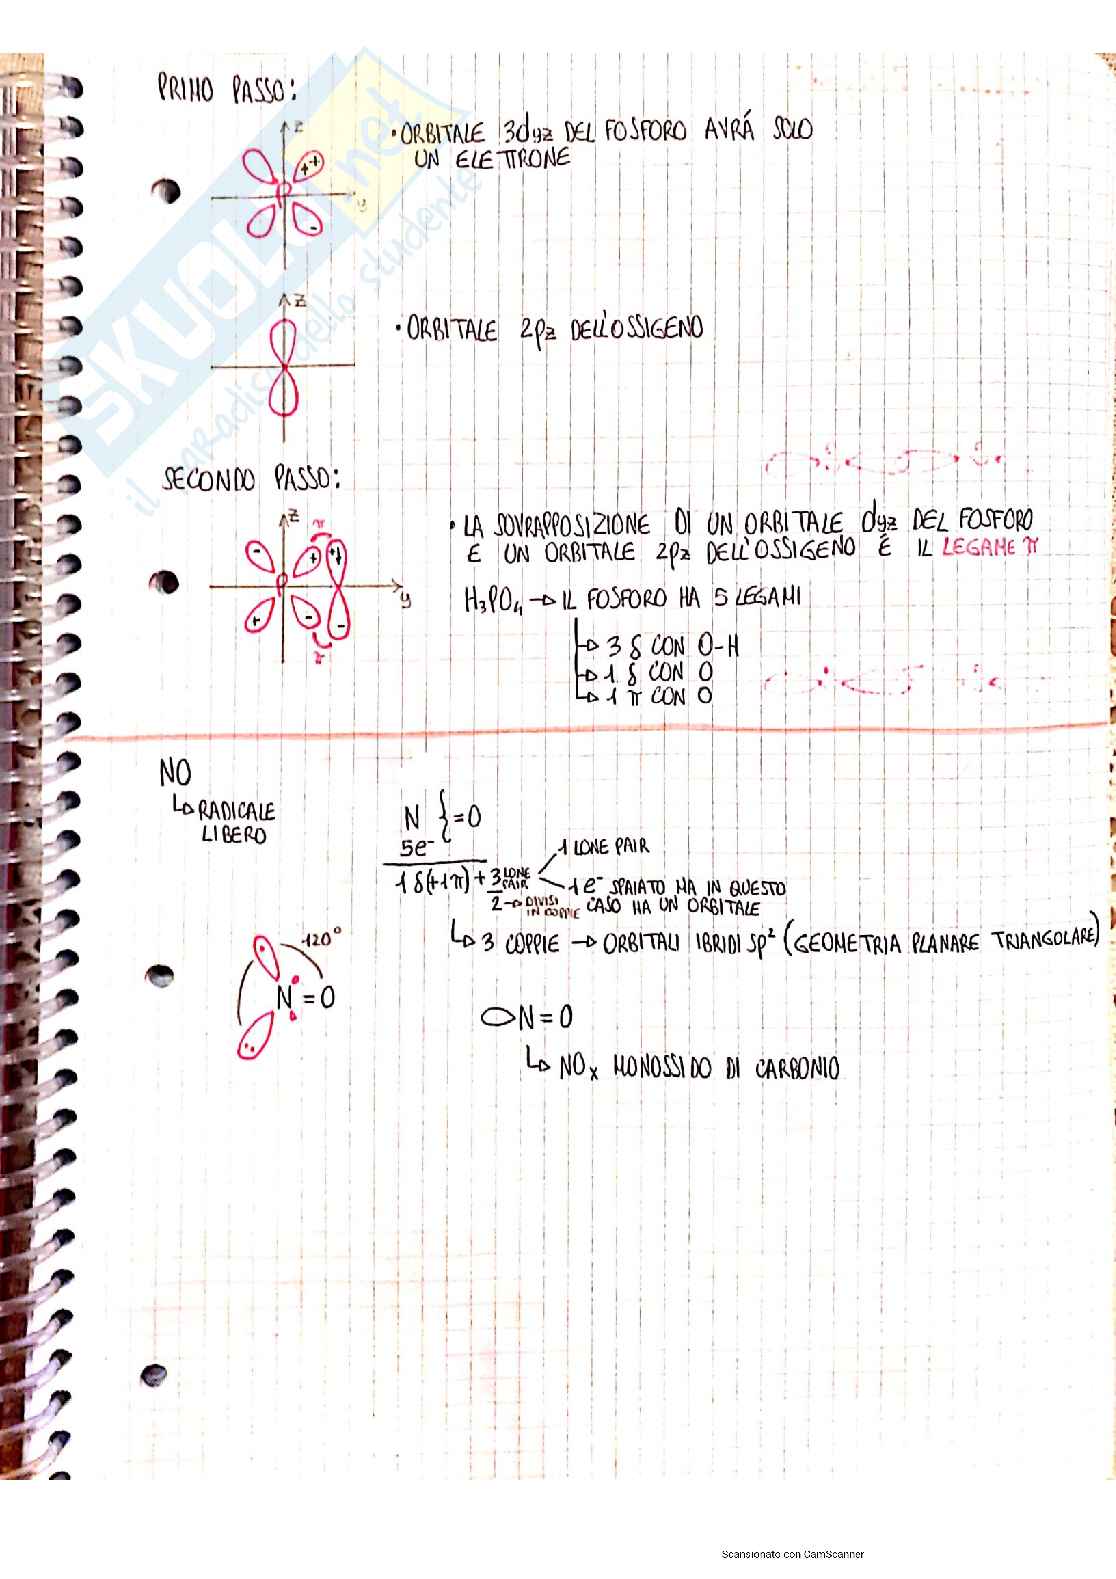 PRIMO PASSO:
z
• ORBITALE 3dyz DEL FOSFORO AVRÁ SOLO
UN ELETTRONE
+ +
y
-
z
• ORBITALE 2pz DELL'OSSIGENO
SECONDO PASSO:
z
π
• LA SOVRAPPOSIZIONE DI UN ORBITALE dyz DEL FOSFORO
E UN ORBITALE 2pz DELL'OSSIGENO É IL LEGAME π
- + +
y
H₃PO₄ → IL FOSFORO HA 5 LEGAMI
+ - -
π
↳ 3 δ CON O-H
↳ 1 δ CON O
↳ 1 π CON O
NO
↳ RADICALE
LIBERO
N } = O
5e⁻
1 δ (+1π) + 3 LONE PAIR
1 LONE PAIR
1 e⁻ SPAIATO MA IN QUESTO
CASO HA UN ORBITALE
2 → DIVISI
IN COPPIE
↳ 3 COPPIE → ORBITALI IBRIDI sp² (GEOMETRIA PLANARE TRIANGOLARE)
120°
N = O
N = O
↳ NOx MONOSSIDO DI CARBONIO
SKUOLA.net
il paradiso dello studente
Scansionato con CamScanner